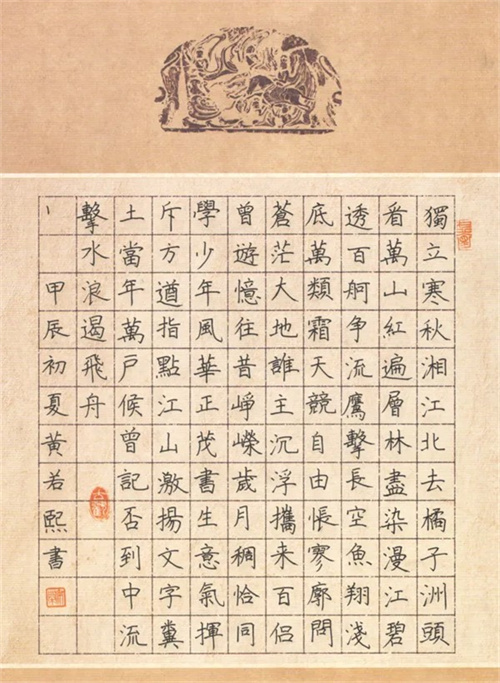 獨立寒秋湘江北去橘子洲頭
看萬山紅遍層林盡染漫江碧
透百舸争流鷹擊長空魚翔淺
底萬類霜天競自由悵寥廓問
蒼茫大地誰主沉浮攜来百侣
曾遊憶往昔崢嶸歲月稠恰同
學少年風華正茂書生意氣揮
斥方遒指點江山激揚文字糞
土當年萬户候曾記否到中流
擊水浪遏飛舟
甲辰初夏黄若熙書